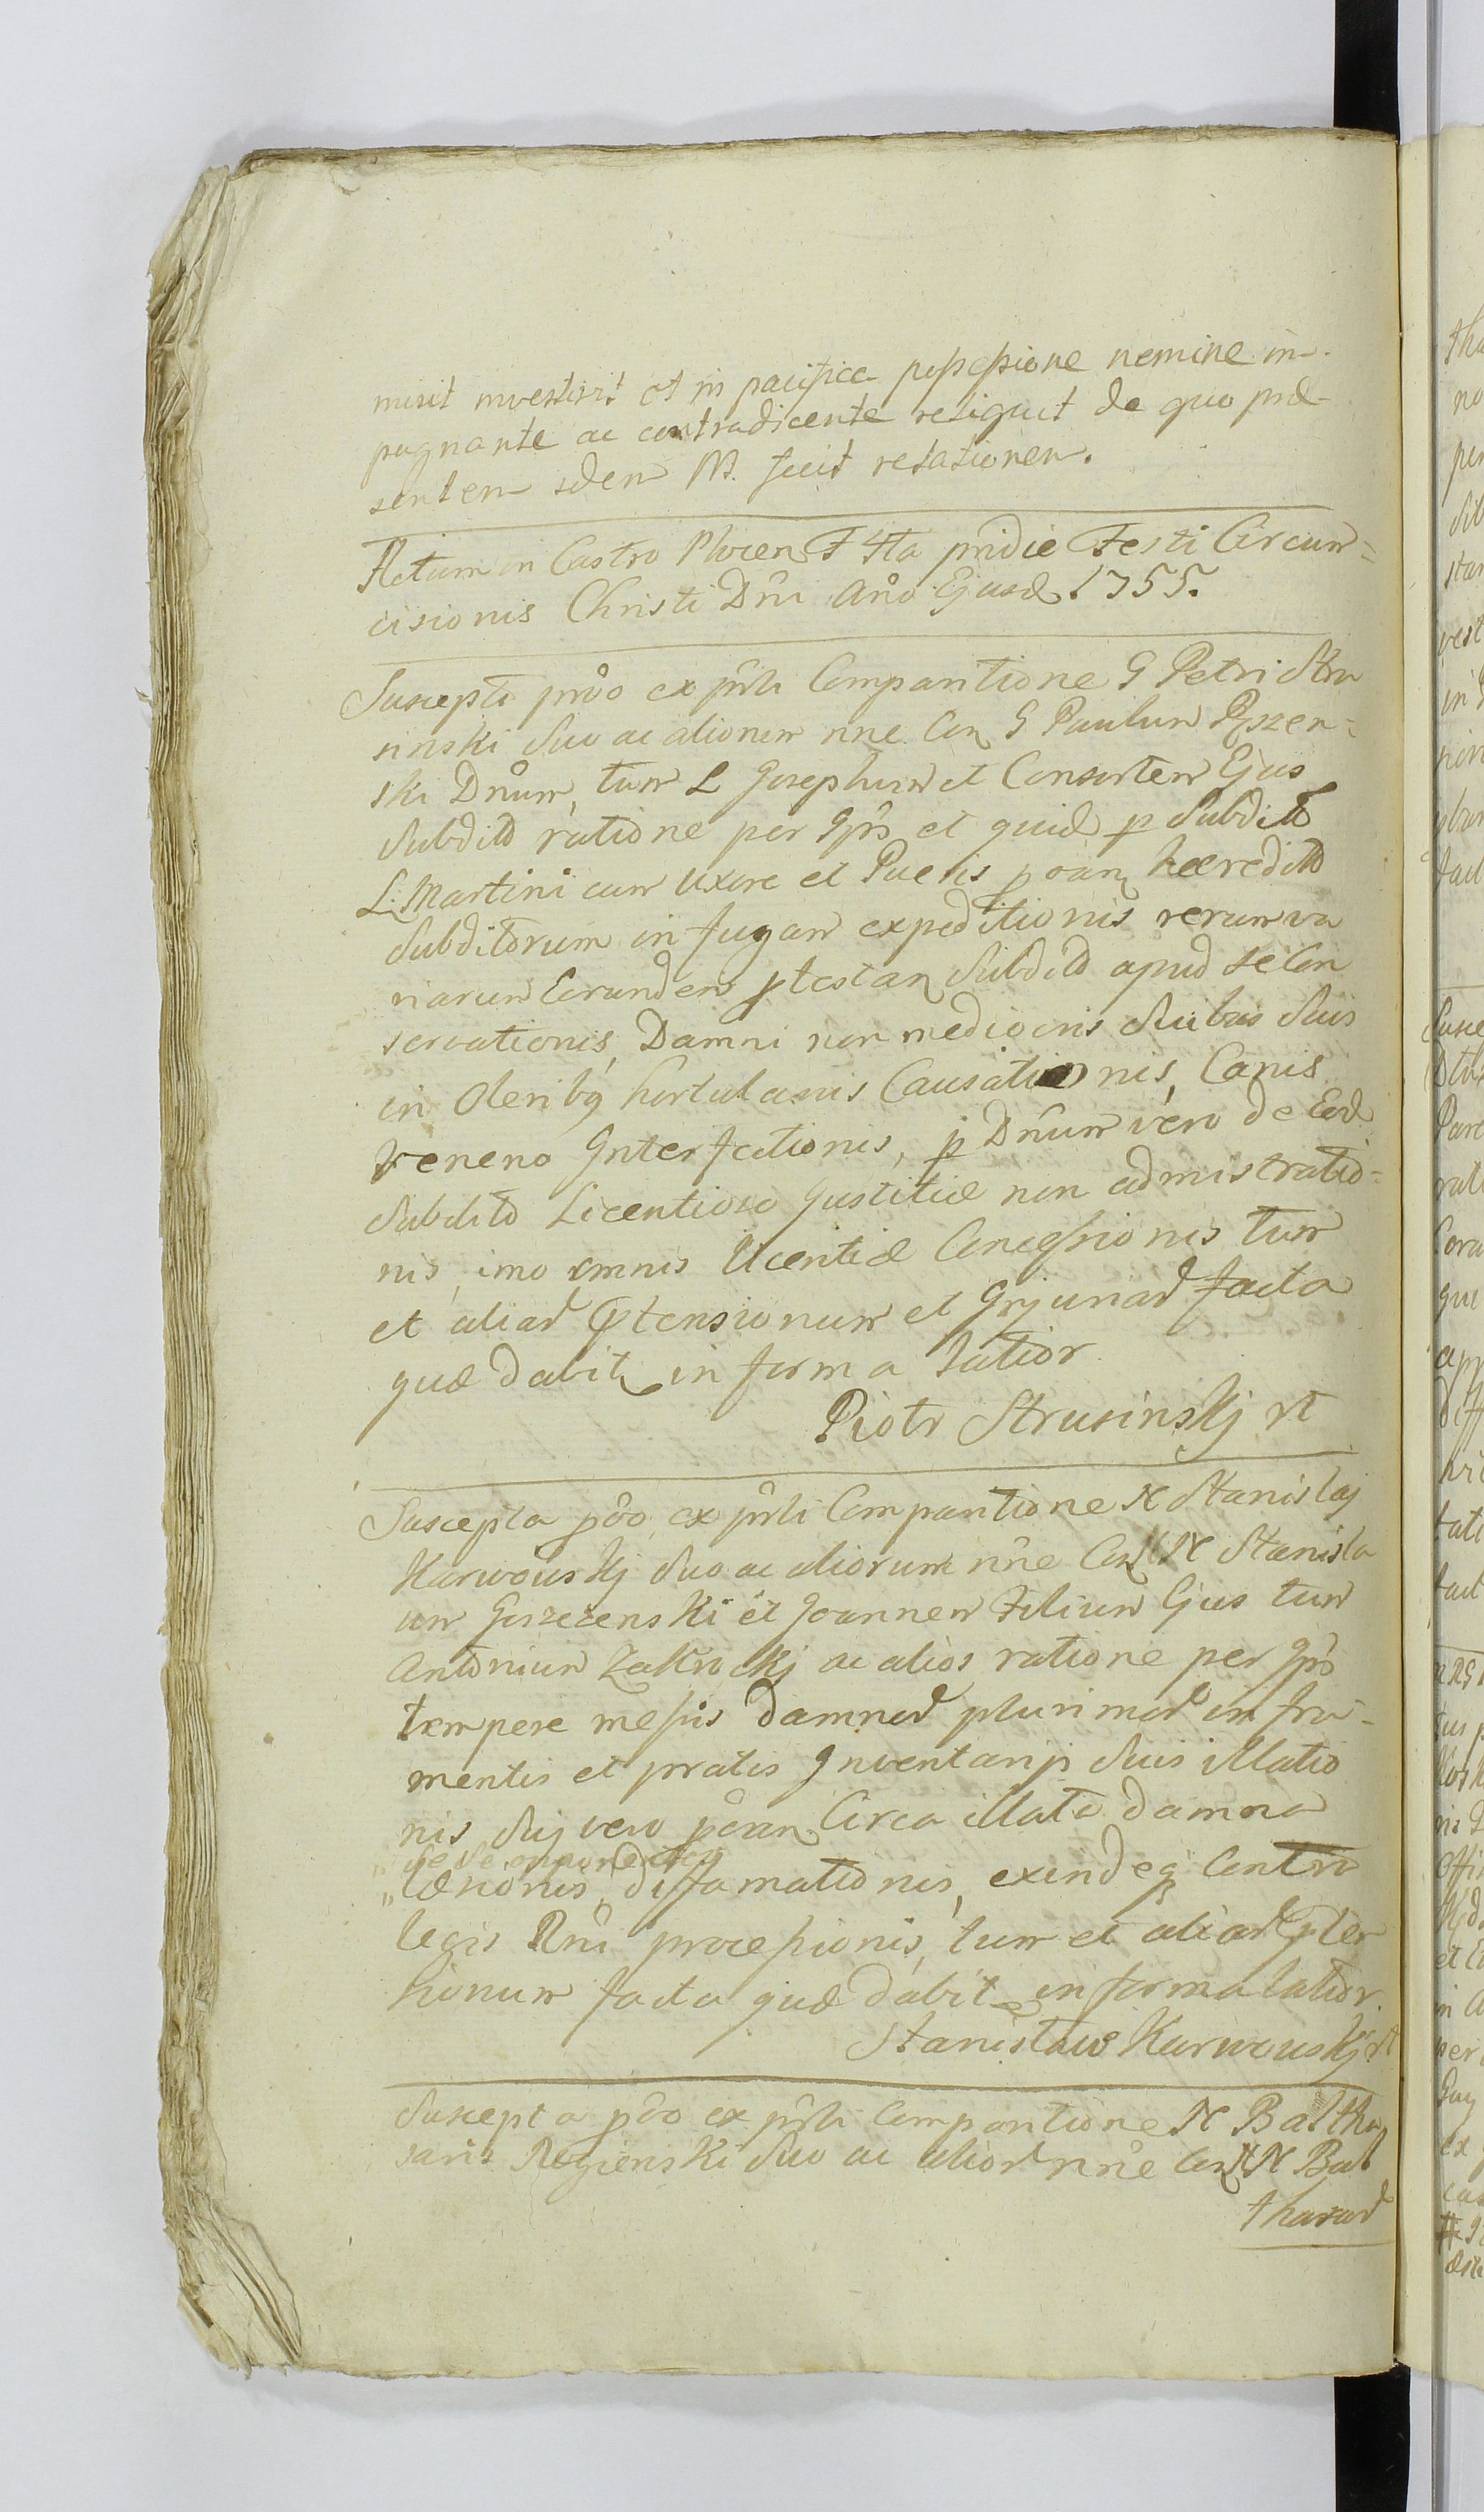 misit investivit et in pacifica possessione nemine im-
pugnante ac contradicente reliquit de quo præ-
sentem idem M. fecit relationem.
Actum in Castro Plocen F 4ta pridie Festi Circum=
cisionis Christi Dni Ano Ejusd 1755.
Suscepta pro ex prli Comparitione G Petri Stru
sinski Suo ac aliorum nne Con G Paulum
ski Dnum, tum L Josephum et Consortem Ejus
Subdito ratione per Ipos et quid p Subdito
L. Martini cum Uxore et Pueris p oran hæredito
Subditorum in fugam expeditionis rerum va
riarum Eorundem ptestan Subdito apud se Con
servationis, Damni non mediocris Suibus Suis
in Oleribq hortulanis Causationis, Canis
veneno Interfectionis, p Dnum vero de Eod
Subdito Licentioso Justitiæ non admistratio=
nis, imo omnis Licentiæ Concessionis tum
et aliar Ptensionum et Injuriar facta
quæ dabit in forma latior
Piotr Strusinskj rt
Suscepta pro ex prli Comparitione N Stanislaj
Karwowskj Suo ac aliorum nne Con NN Stanisla
um et Joannem Filium Ejus tum
Antonium ac alios ratione per Ipos
tempore messis damnor plurimor in fru-
mentis et pratis Inventarijs Suis illatio
nis Suj vero poran Circa illata damna
læsionis, diffamationis, exindeq Contra
legis Rni processionis, tum et aliar Pten
sionum facta quæ dabit in forma latior.
Stanisław Karwowskj rt
Suscepta pro ex prli Comparitione N Baltha
saris Rogienski Suo ac alior nne Con NN Bal
thasar